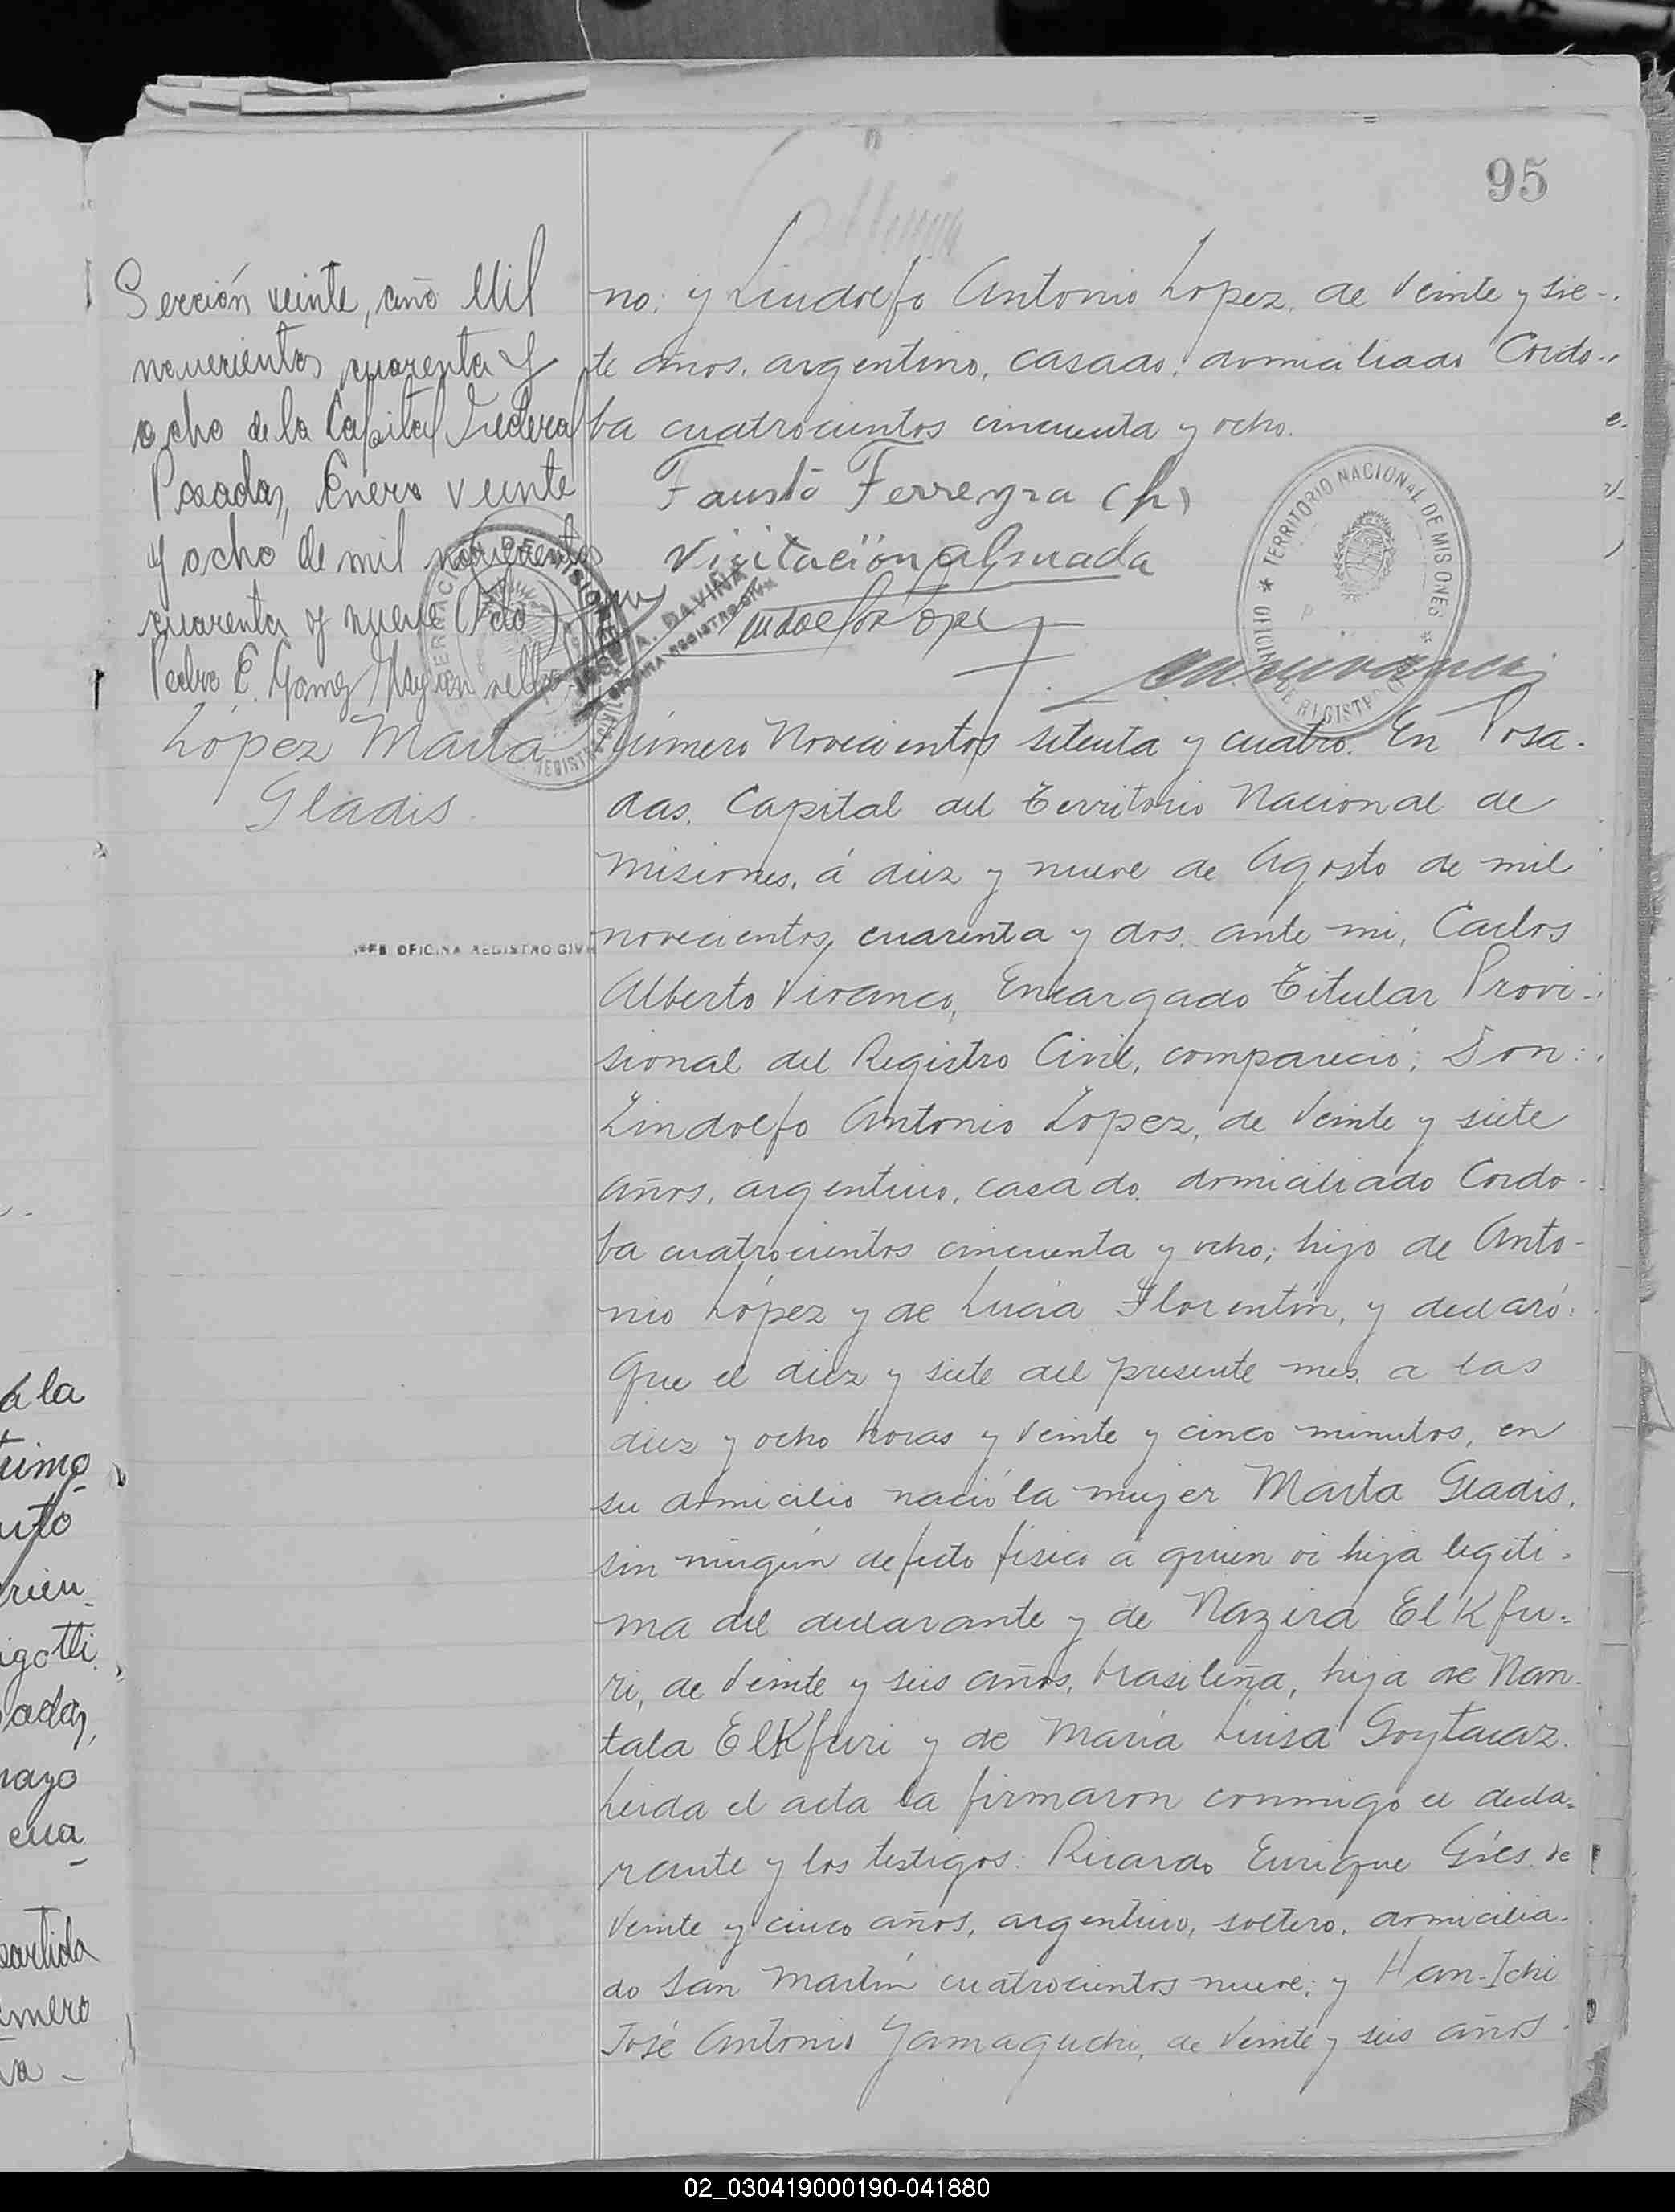 95
Sección veinte, año Mil
novecientos cuarenta y
ocho de la Capital Federal
Posadas, Enero veinte
y ocho de mil novecientos
cuarenta y nueve
Pedro E. Gomez
no; y Lindolfo Antonio Lopez, de Veinte y sie-
te años, argentino, casado, domiciliado Cordo-
ba cuatrocientos cincuenta y ocho.
Fausto Ferreyra (h)
Visitación Alsuada
TERRITORIO NACIONAL DE MISIONES
JOSE A. DAVIÑA
López Marta
Gladis
JEFE OFICINA REGISTRO CIVIL
Número Novecientos setenta y cuatro. En Posa-
das, Capital del Territorio Nacional de
Misiones, á diez y nueve de Agosto de mil
novecientos cuarenta y dos, ante mi, Carlos
Alberto Vivanco, Encargado Titular Provi-
sional del Registro Civil, compareció; Don:
Lindolfo Antonio Lopez, de Veinte y siete
años, argentino, casado, domiciliado Cordo-
ba cuatrocientos cincuenta y ocho; hijo de Anto-
nio López y de Lucía Florentín, y declaró:
Que el diez y siete del presente mes, a las
diez y ocho horas y Veinte y cinco minutos, en
su domicilio nació la mujer Marta Gladis,
sin ningún defecto físico a quien vi hija legíti-
ma del declarante y de Nazira El Kfu-
ri, de Veinte y seis años, brasileña, hija de Nan-
tala ElKfuri y de María Luisa Goytacaz.
Leida el acta la firmaron conmigo el decla-
rante y los testigos: Ricardo Enrique Gíes, de
Veinte y cinco años, argentino, soltero, domicilia-
do San Martín cuatrocientos nueve; y Han-Ichi
José Antonio Yamaguchi, de Veinte y seis años
a la
rien-
mayo
cua
partida
02_030419000190-041880